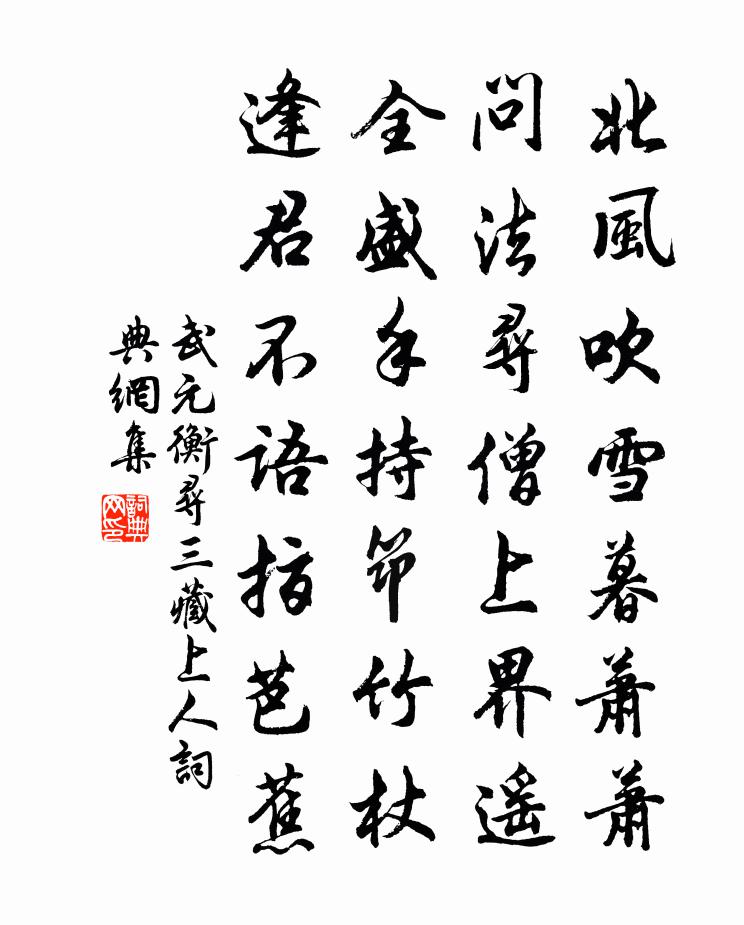 北風吹雪暮蕭蕭
問法尋僧上界遥
全盛手持筇竹杖
逢君不語指芭蕉
武元衡尋三藏上人詞
典網集
詞典
网印